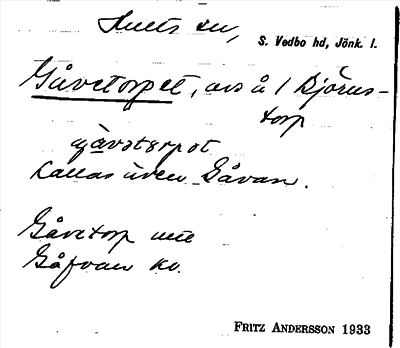 Hults sn,
S. Vedbo hd, Jönk. l.
Gåvetorpet, avs å 1 Björns-
torp
gåvətɔrpət
Kallas även Gåvan.
Gåvetorp
Gåfvan kv.
FRITZ ANDERSSON 1933